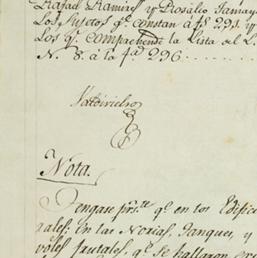 Rafael Ramires y Rosalio Tamay
Los Sujetos q.e constan á fs 291. y
Los q.e comprehende la Lista del L.
N. 8. á la fª 296.
Valdivielso
Nota.
Tengase pres.te q.e en los Edifici
en las Norias, Tanques, y
boles frutales, q.e se hallaron